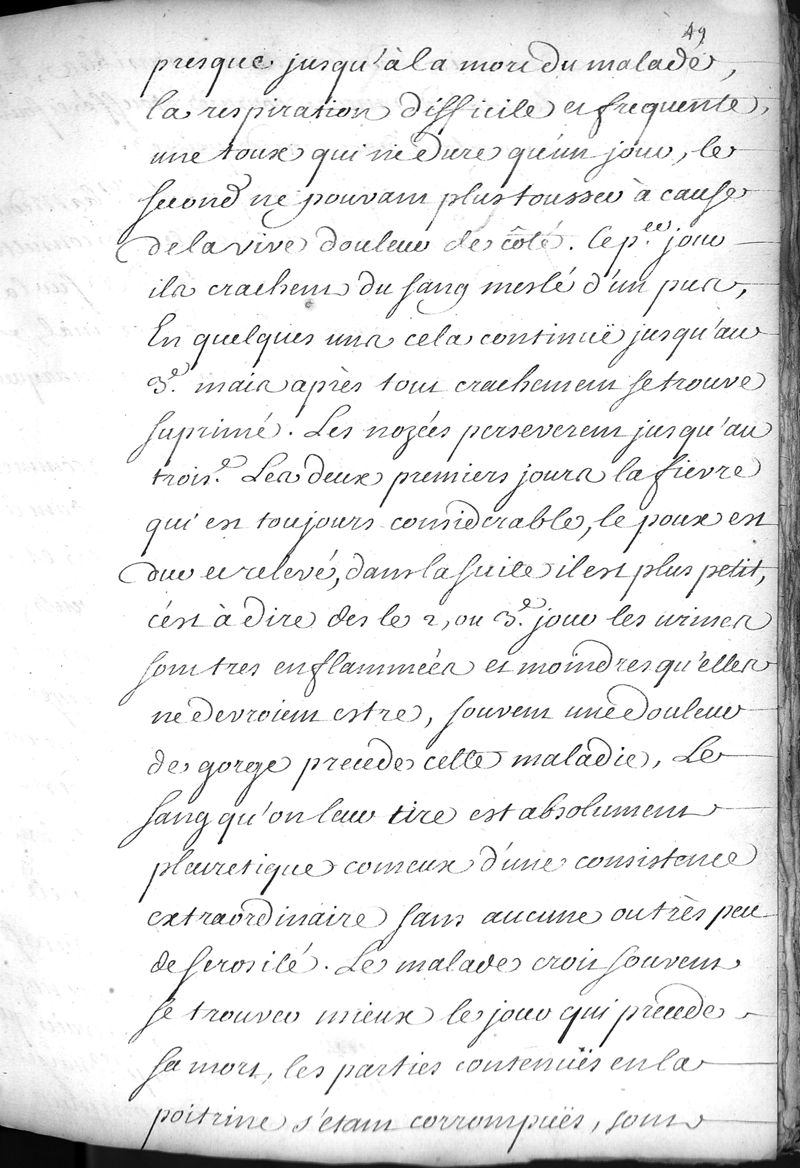 49
presque jusqu'à la mort du malade,
la respiration difficile et frequente,
une toux qui ne dure qu'un jour, le
second ne pouvant plus tousser à cause
de la vive douleur de côté. Le p.er jour
ils crachent du sang meslé d'un pus,
En quelques uns cela continuë jusqu'au
3.e mais après tout crachement se trouve
suprimé. Les nozées perseverent jusqu'au
trois.e Les deux premiers jours la fievre
qui est toujours considerable, le poux est
dur et relevé, dans la suite il est plus petit,
c'est à dire des le 2, ou 3.e jour les urines
sont tres enflammées et moindres qu'elles
ne devroient estre, souvent une douleur
de gorge precede cette maladie, Le
sang qu'on leur tire est absolument
pleuretique coineux d'une consistence
extraordinaire sans aucune ou très peu
de serosité. Le malade croit souvent
se trouver mieux le jour qui precede
sa mort, les parties contenuës en la
poitrine s'etant corrompuës, sont